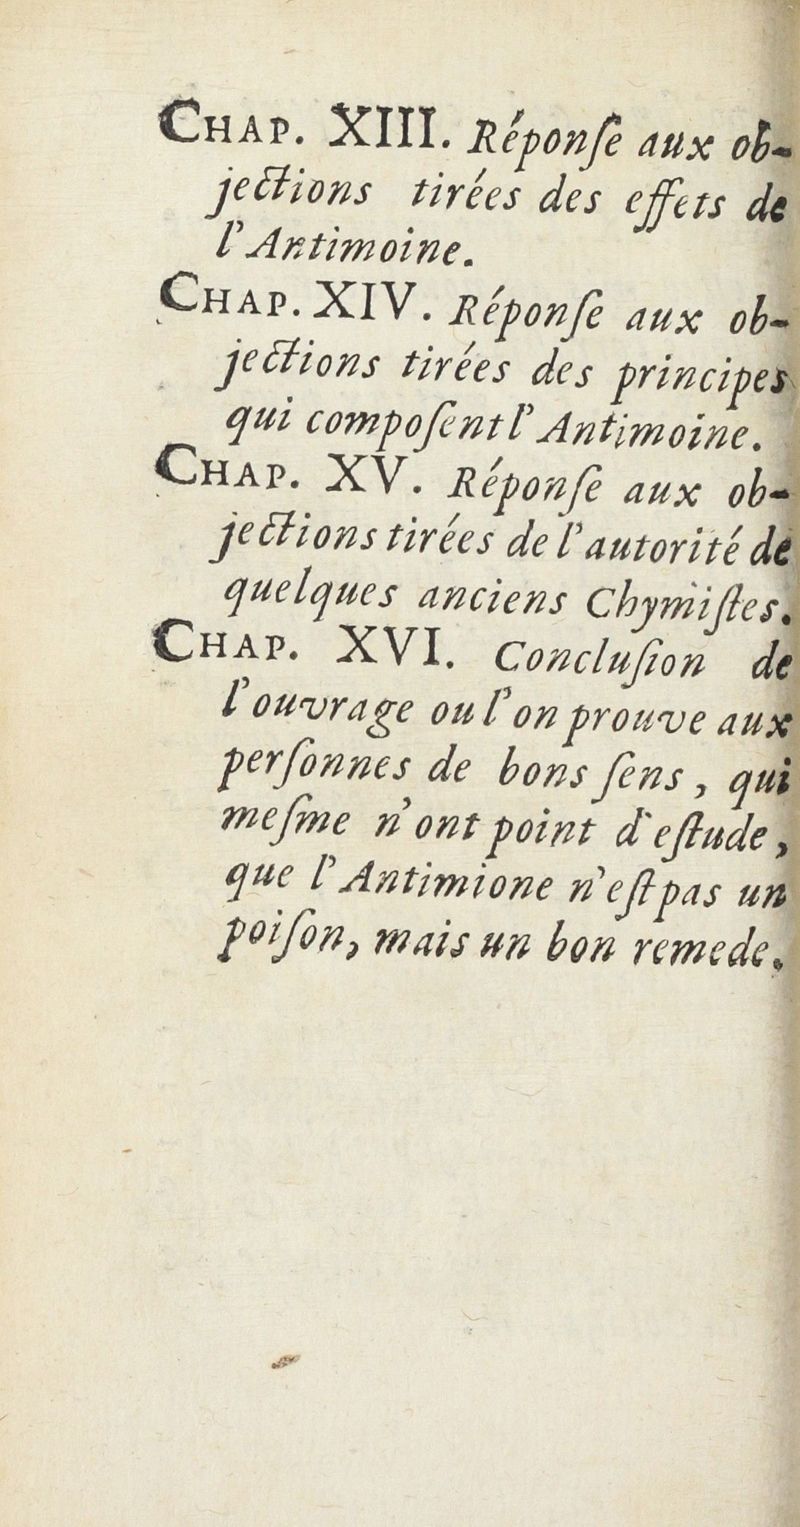 CHAP. XIII. Réponſe aux ob-
jections tirées des effets de
l'Antimoine.
CHAP. XIV. Réponſe aux ob-
jections tirées des principes
qui compoſent l'Antimoine.
CHAP. XV. Réponſe aux ob-
jections tirées de l'autorité de
quelques anciens Chymiſtes.
CHAP. XVI. Concluſion de
l'ouvrage ou l'on prouve aux
perſonnes de bons ſens, qui
meſme n'ont point d'eſtude,
que l'Antimione n'eſt pas un
poiſon, mais un bon remede.